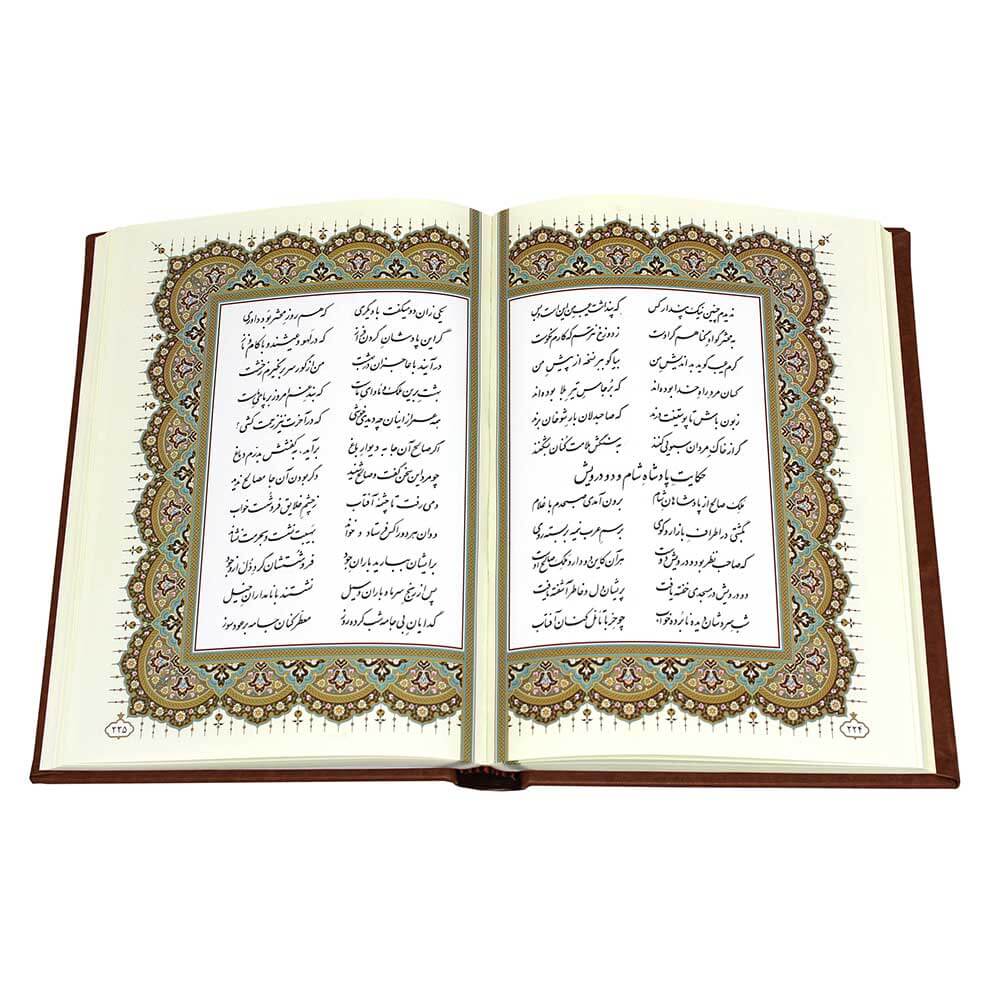 ندیدم چنین نیک پندار کس که پنداشت عیب من این است و بس
به محشر گواه گناهم گر اوست ز دوزخ نترسم که کارم نکوست
گرم عیب گوید بداندیش من بیا گو ببر نسخه از پیش من
کسان مرد راه خدا بوده‌اند که برجاس تیر بلا بوده‌اند
زبون باش تا پوستینت درند که صاحبدلان بار شوخان برند
گر از خاک مردان سبویی کنند به سنگش ملامت کنان بشکنند
حکایت پادشاه شام و دو درویش
ملک صالح از پادشاهان شام برون آمدی صبحدم با غلام
بگشتی در اطراف بازار و کوی به رسم عرب نیمه بر بسته روی
که صاحب نظر بود و درویش دوست هر آن کاین دو دارد ملک صالح اوست
دو درویش در مسجدی خفته یافت پریشان دل و خاطر آشفته یافت
شب سردشان دیده نابرده خواب چو حربا تأمل کنان آفتاب
۲۲۴
یکی زان دو می‌گفت با دیگری که هم روز محشر بود داوری
گر این پادشاهان گردن فراز که در لهو و عیشند و با کام و ناز
درآیند با عاجزان در بهشت من از گور سر برنگیرم ز خشت
بهشت برین ملک و مأوای ماست که بند غم امروز بر پای ماست
همه عمر از اینان چه دیدی خوشی که در آخرت نیز زحمت کشی؟
اگر صالح آن جا به دیوار باغ برآید، به کفشش بدرم دماغ
چو مرد این سخن گفت و صالح شنید دگر بودن آن جا مصالح ندید
دمی رفت تا چشمه آفتاب ز چشم خلایق فرو شست خواب
دوان هر دو را کس فرستاد و خواند به هیبت نشست و به حرمت نشاند
بر ایشان ببارید باران جود فرو شستشان گرد ذل از وجود
پس از رنج سرما و باران و سیل نشستند با نامداران خیل
گدایان بی جامه شب کرده روز معطر کنان جامه بر عود سوز
۲۲۵